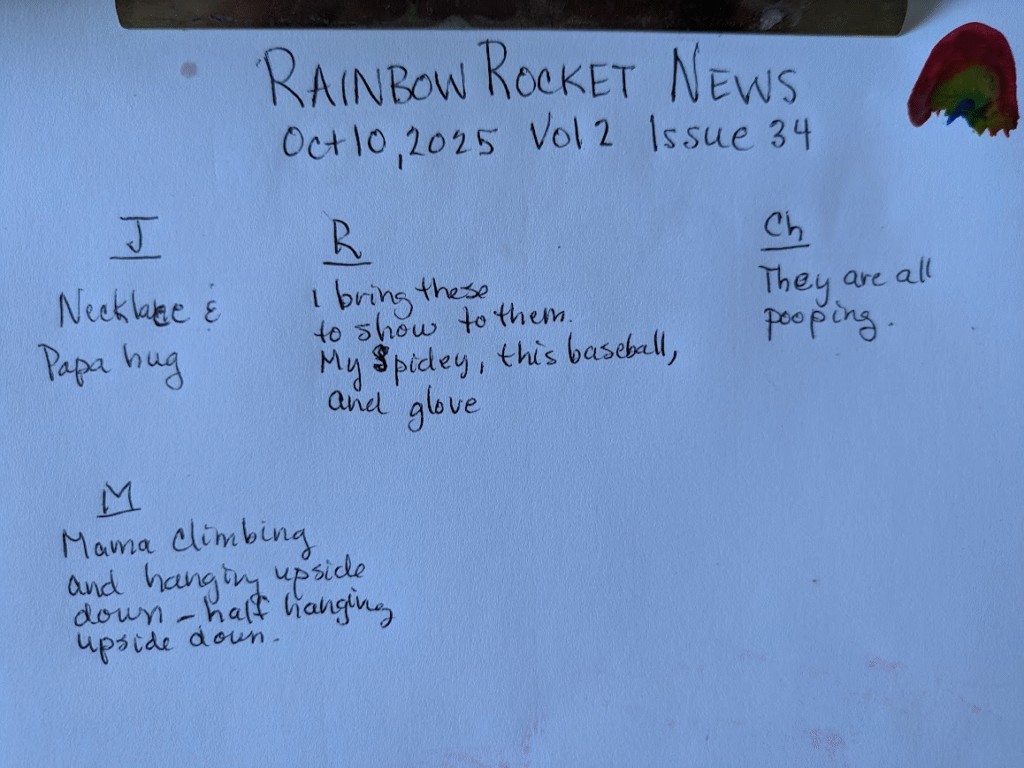 RAINBOW ROCKET NEWS
Oct 10, 2025 Vol 2 Issue 34
J
Necklace &
Papa hug
R
I bring these
to show to them.
My Spidey, this baseball,
and glove
Ch
They are all
pooping.
M
Mama climbing
and hanging upside
down - half hanging
upside down.